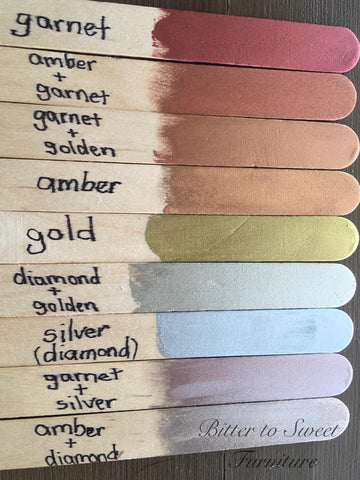 garnet
amber
+
garnet
garnet
+
golden
amber
gold
diamond
+
golden
silver
(diamond)
garnet
+
silver
amber
+
diamond
Bitter to Sweet
Furniture